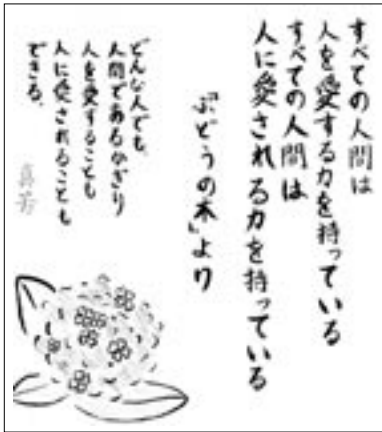 すべての人間は
人を愛する力を持っている
すべての人間は
人に愛される力を持っている
『ぶどうの木』より
どんな人でも、
人間であるかぎり
人を愛することも
人に愛されることも
できる。